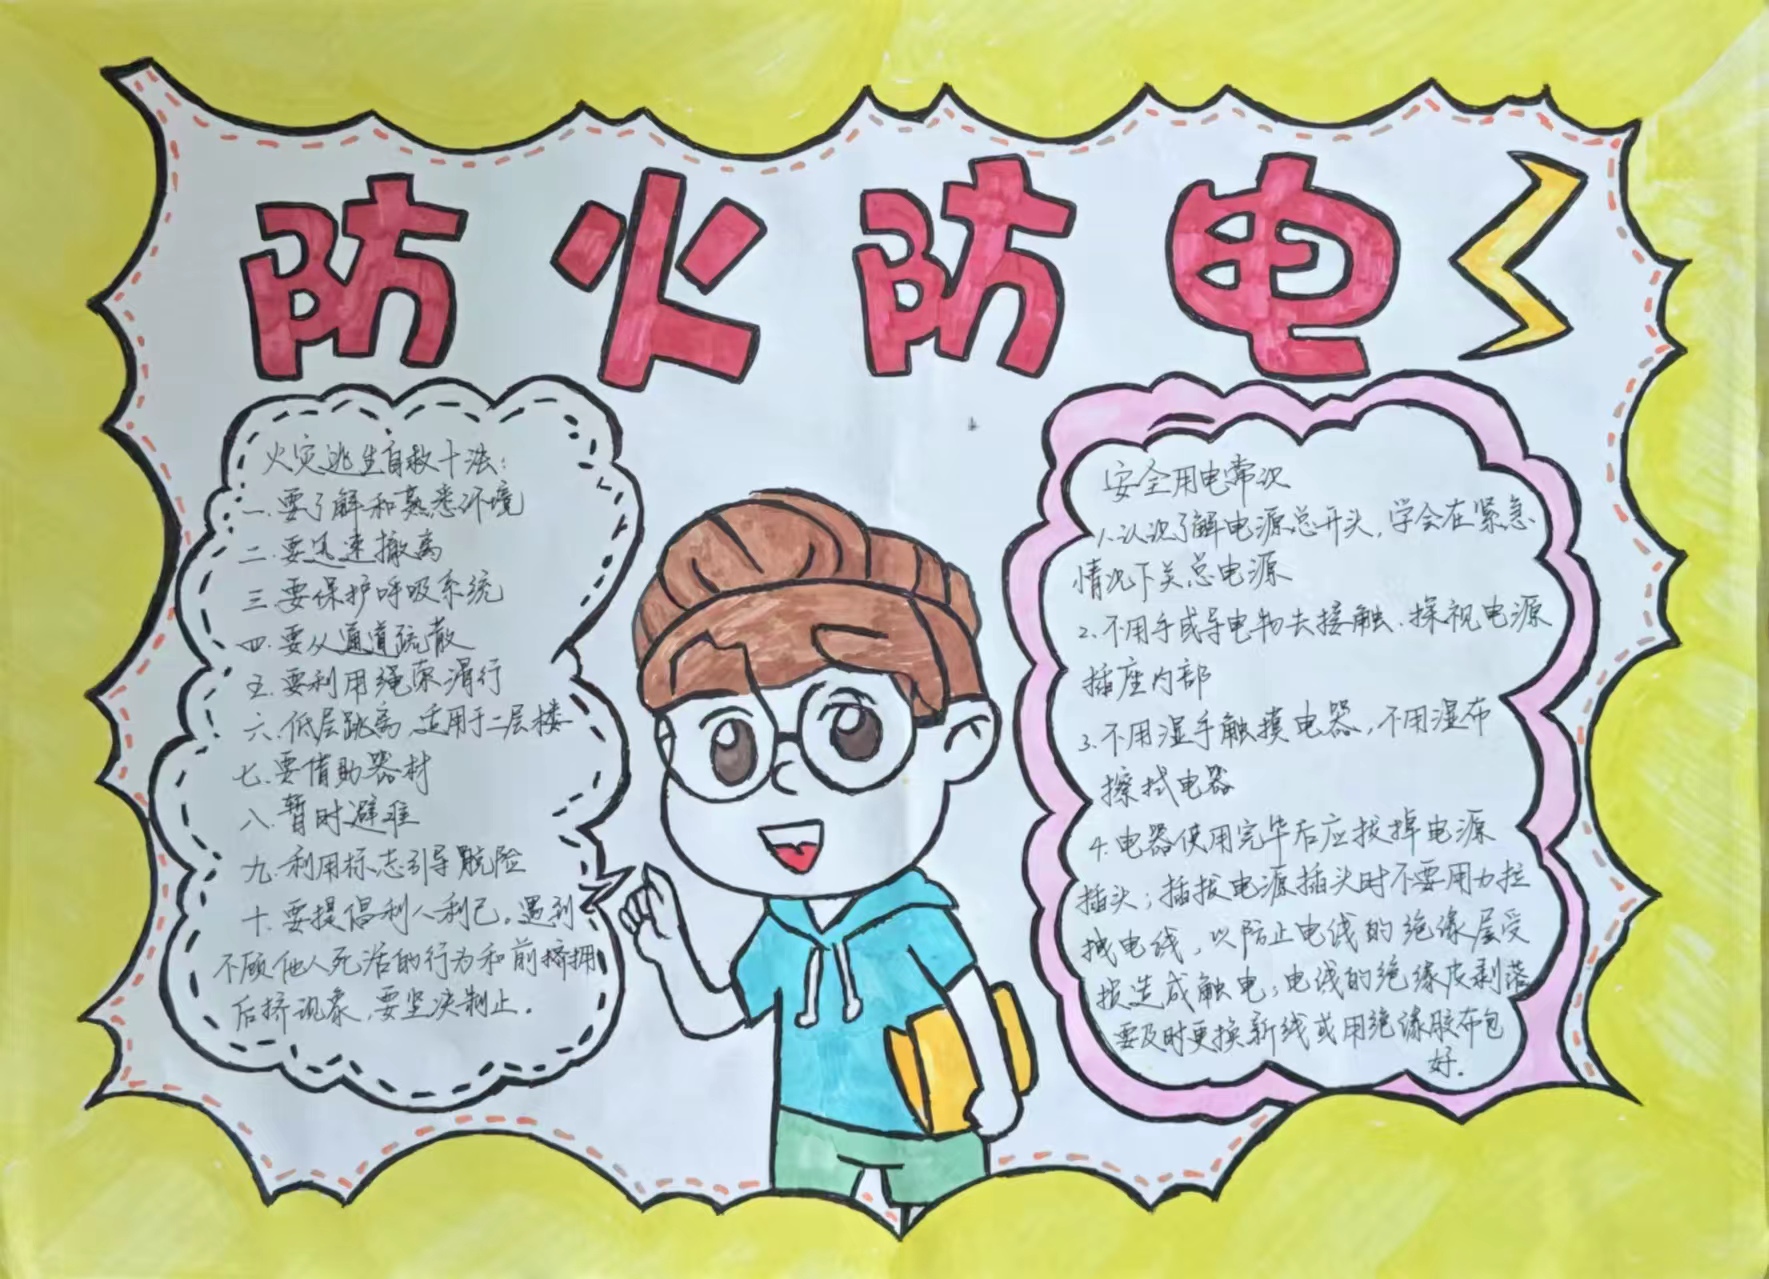 防火防电
火灾逃生自救十法：
一.要了解和熟悉环境
二.要迅速撤离
三.要保护呼吸系统
四.要从通道疏散
五.要利用绳索滑行
六.低层跳离,适用于二层楼
七.要借助器材
八.暂时避难
九.利用标志引导脱险
十.要提倡利人利己。遇到
不顾他人死活的行为和前挤拥
后挤现象,要坚决制止.
安全用电常识
1.认识了解电源总开头,学会在紧急
情况下关总电源
2.不用手或导电物去接触、探视电源
插座内部
3.不用湿手触摸电器,不用湿布
擦拭电器
4.电器使用完毕后应拔掉电源
插头;插拔电源插头时不要用力拉
拽电线,以防止电线的绝缘层受
损造成触电;电线的绝缘皮剥落
要及时更换新线或用绝缘胶布包
好.